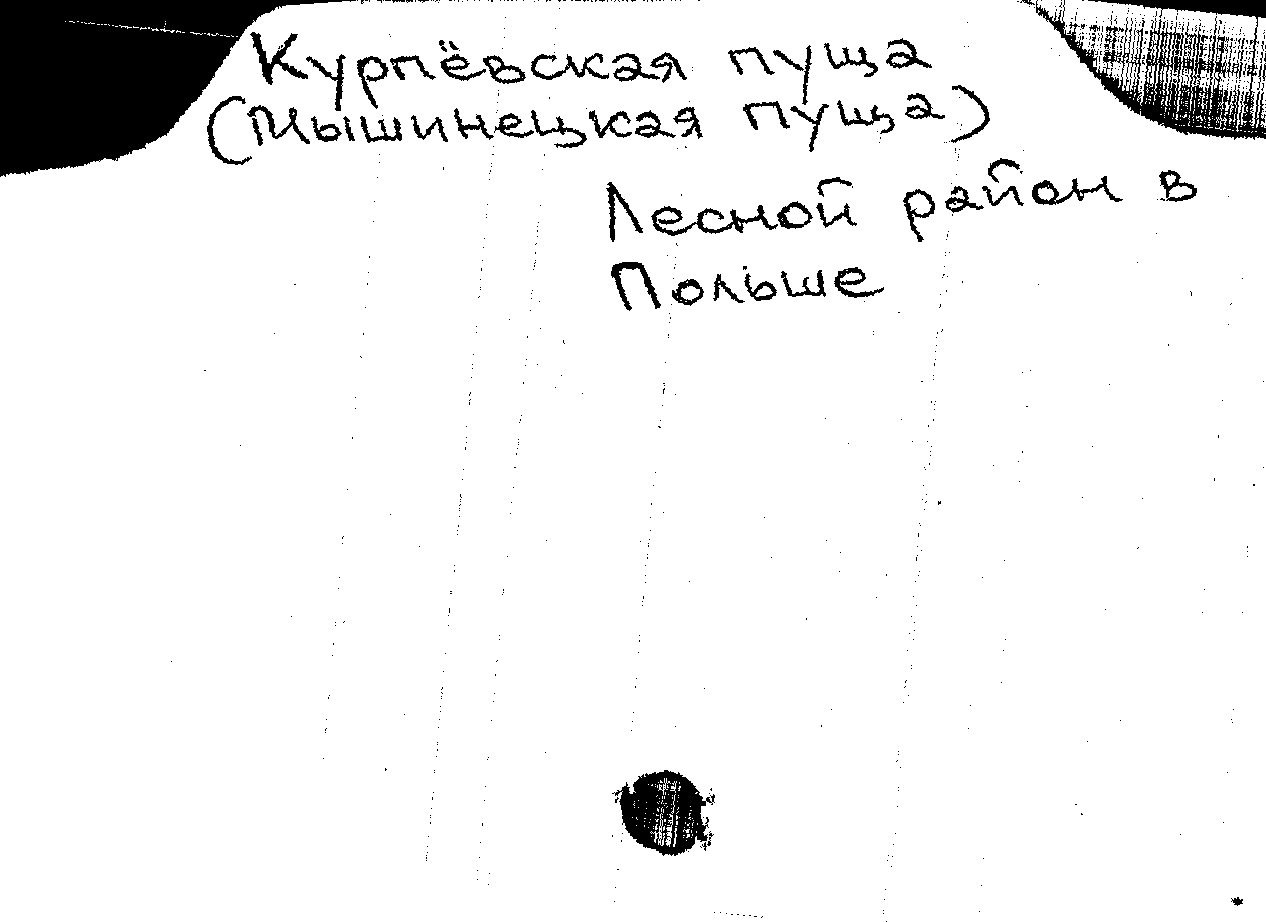 Курпёвская пуща
(Мышинецкая пуща)
Лесной район в
Польше